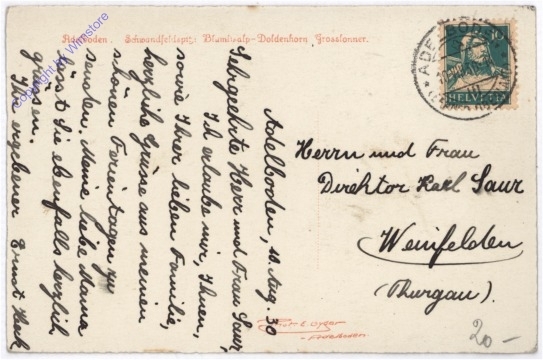 Adelboden. Schwandfeldspitz: Blümlisalp-Doldenhorn Grosslonner.
copyright by Wmstore
Adelboden, 10. Aug. 30
Sehrgeehrte Herr und Frau Saur,
Ich erlaube mir, Ihnen,
sowie Ihrer lieben Familie,
herzliche Grüsse aus meinen
schönen Ferientagen zu
senden. Meine liebe Mama
lässt Sie ebenfalls herzlich
grüssen.
Ihr ergebener Ernst
HELVETIA
10
Herrn und Frau
Direktor Karl Saur
Weinfelden
(Thurgau).
Phot. E. Gyger
Adelboden
20-